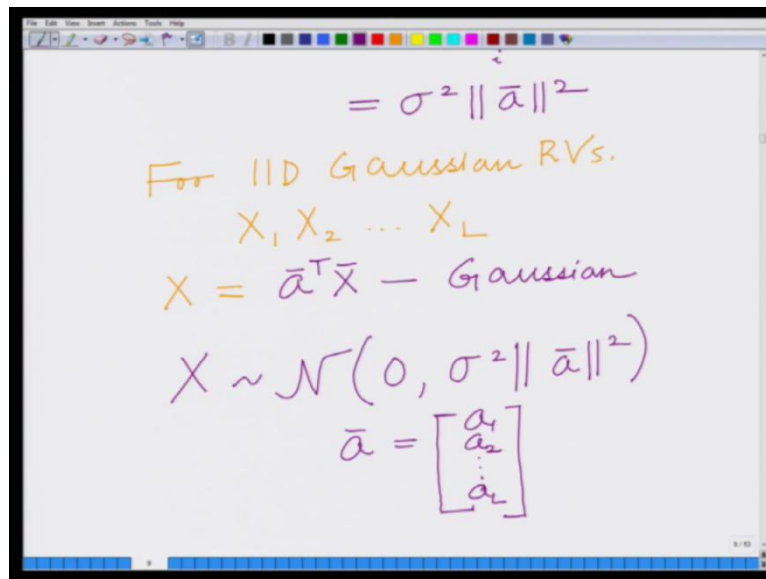 File Edit View Insert Actions Tools Help
i
= σ² || ā ||²
For IID Gaussian RVs.
X₁ X₂ ... X_L
X = ā^T X̄ — Gaussian
X ~ N(0, σ² || ā ||²)
ā = [a₁
a₂
⋮
a_L]
9 / 53
9